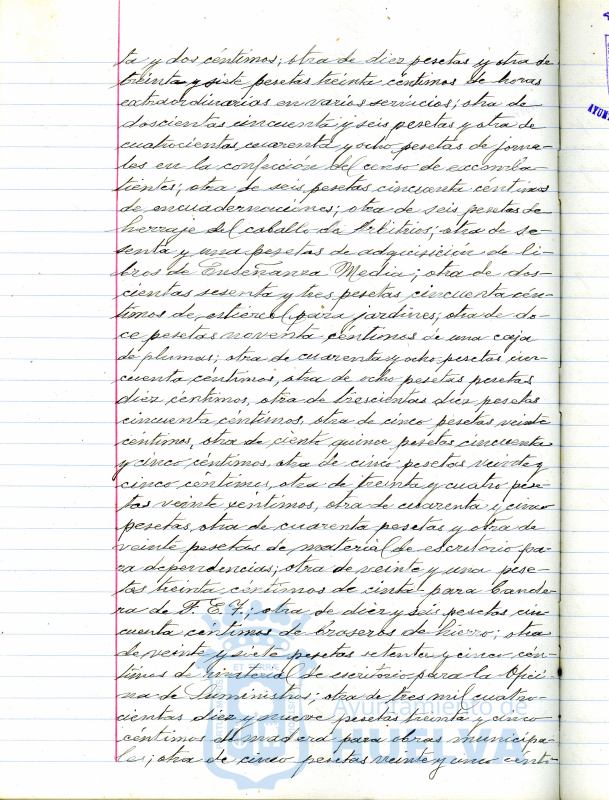 ta y dos céntimos; otra de diez pesetas y otra de
treinta y siete pesetas treinta céntimos de horas
extraordinarias en varios servicios; otra de
doscientas cincuenta y seis pesetas y otra de
cuatrocientas cuarenta y ocho pesetas de jorna-
les en la confección del censo de excomba-
tientes; otra de seis pesetas cincuenta céntimos
de encuadernaciones; otra de seis pesetas de
herraje del caballo de Arbitrios; otra de se-
senta y una pesetas de adquisición de li-
bros de Enseñanza Media; otra de dos-
cientas sesenta y tres pesetas cincuenta cén-
timos de estiércol para jardines; otra de do-
ce pesetas noventa céntimos de una caja
de plumas; otra de cuarenta y ocho pesetas cin-
cuenta céntimos, otra de ocho pesetas pesetas
diez céntimos, otra de trescientas diez pesetas
cincuenta céntimos, otra de cinco pesetas veinte
céntimos, otra de ciento quince pesetas cincuenta
y cinco céntimos, otra de cinco pesetas veinte y
cinco céntimos, otra de treinta y cuatro pese-
tas veinte céntimos, otra de cuarenta y cinco
pesetas, otra de cuarenta pesetas y otra de
veinte pesetas de material de escritorio pa-
ra dependencias; otra de veinte y una pese-
tas treinta céntimos de cinta para bande-
ra de F. E. T.; otra de diez y seis pesetas cin-
cuenta céntimos de braseros de hierro; otra
de veinte y siete pesetas setenta y cinco cén-
timos de material de escritorio para la Ofici-
na de Suministros; otra de tres mil cuatro-
cientas diez y nueve pesetas treinta y cinco
céntimos de madera para obras municipa-
les; otra de cinco pesetas veinte y uno cénti-
Ayuntamiento de
HUELVA
AYUN